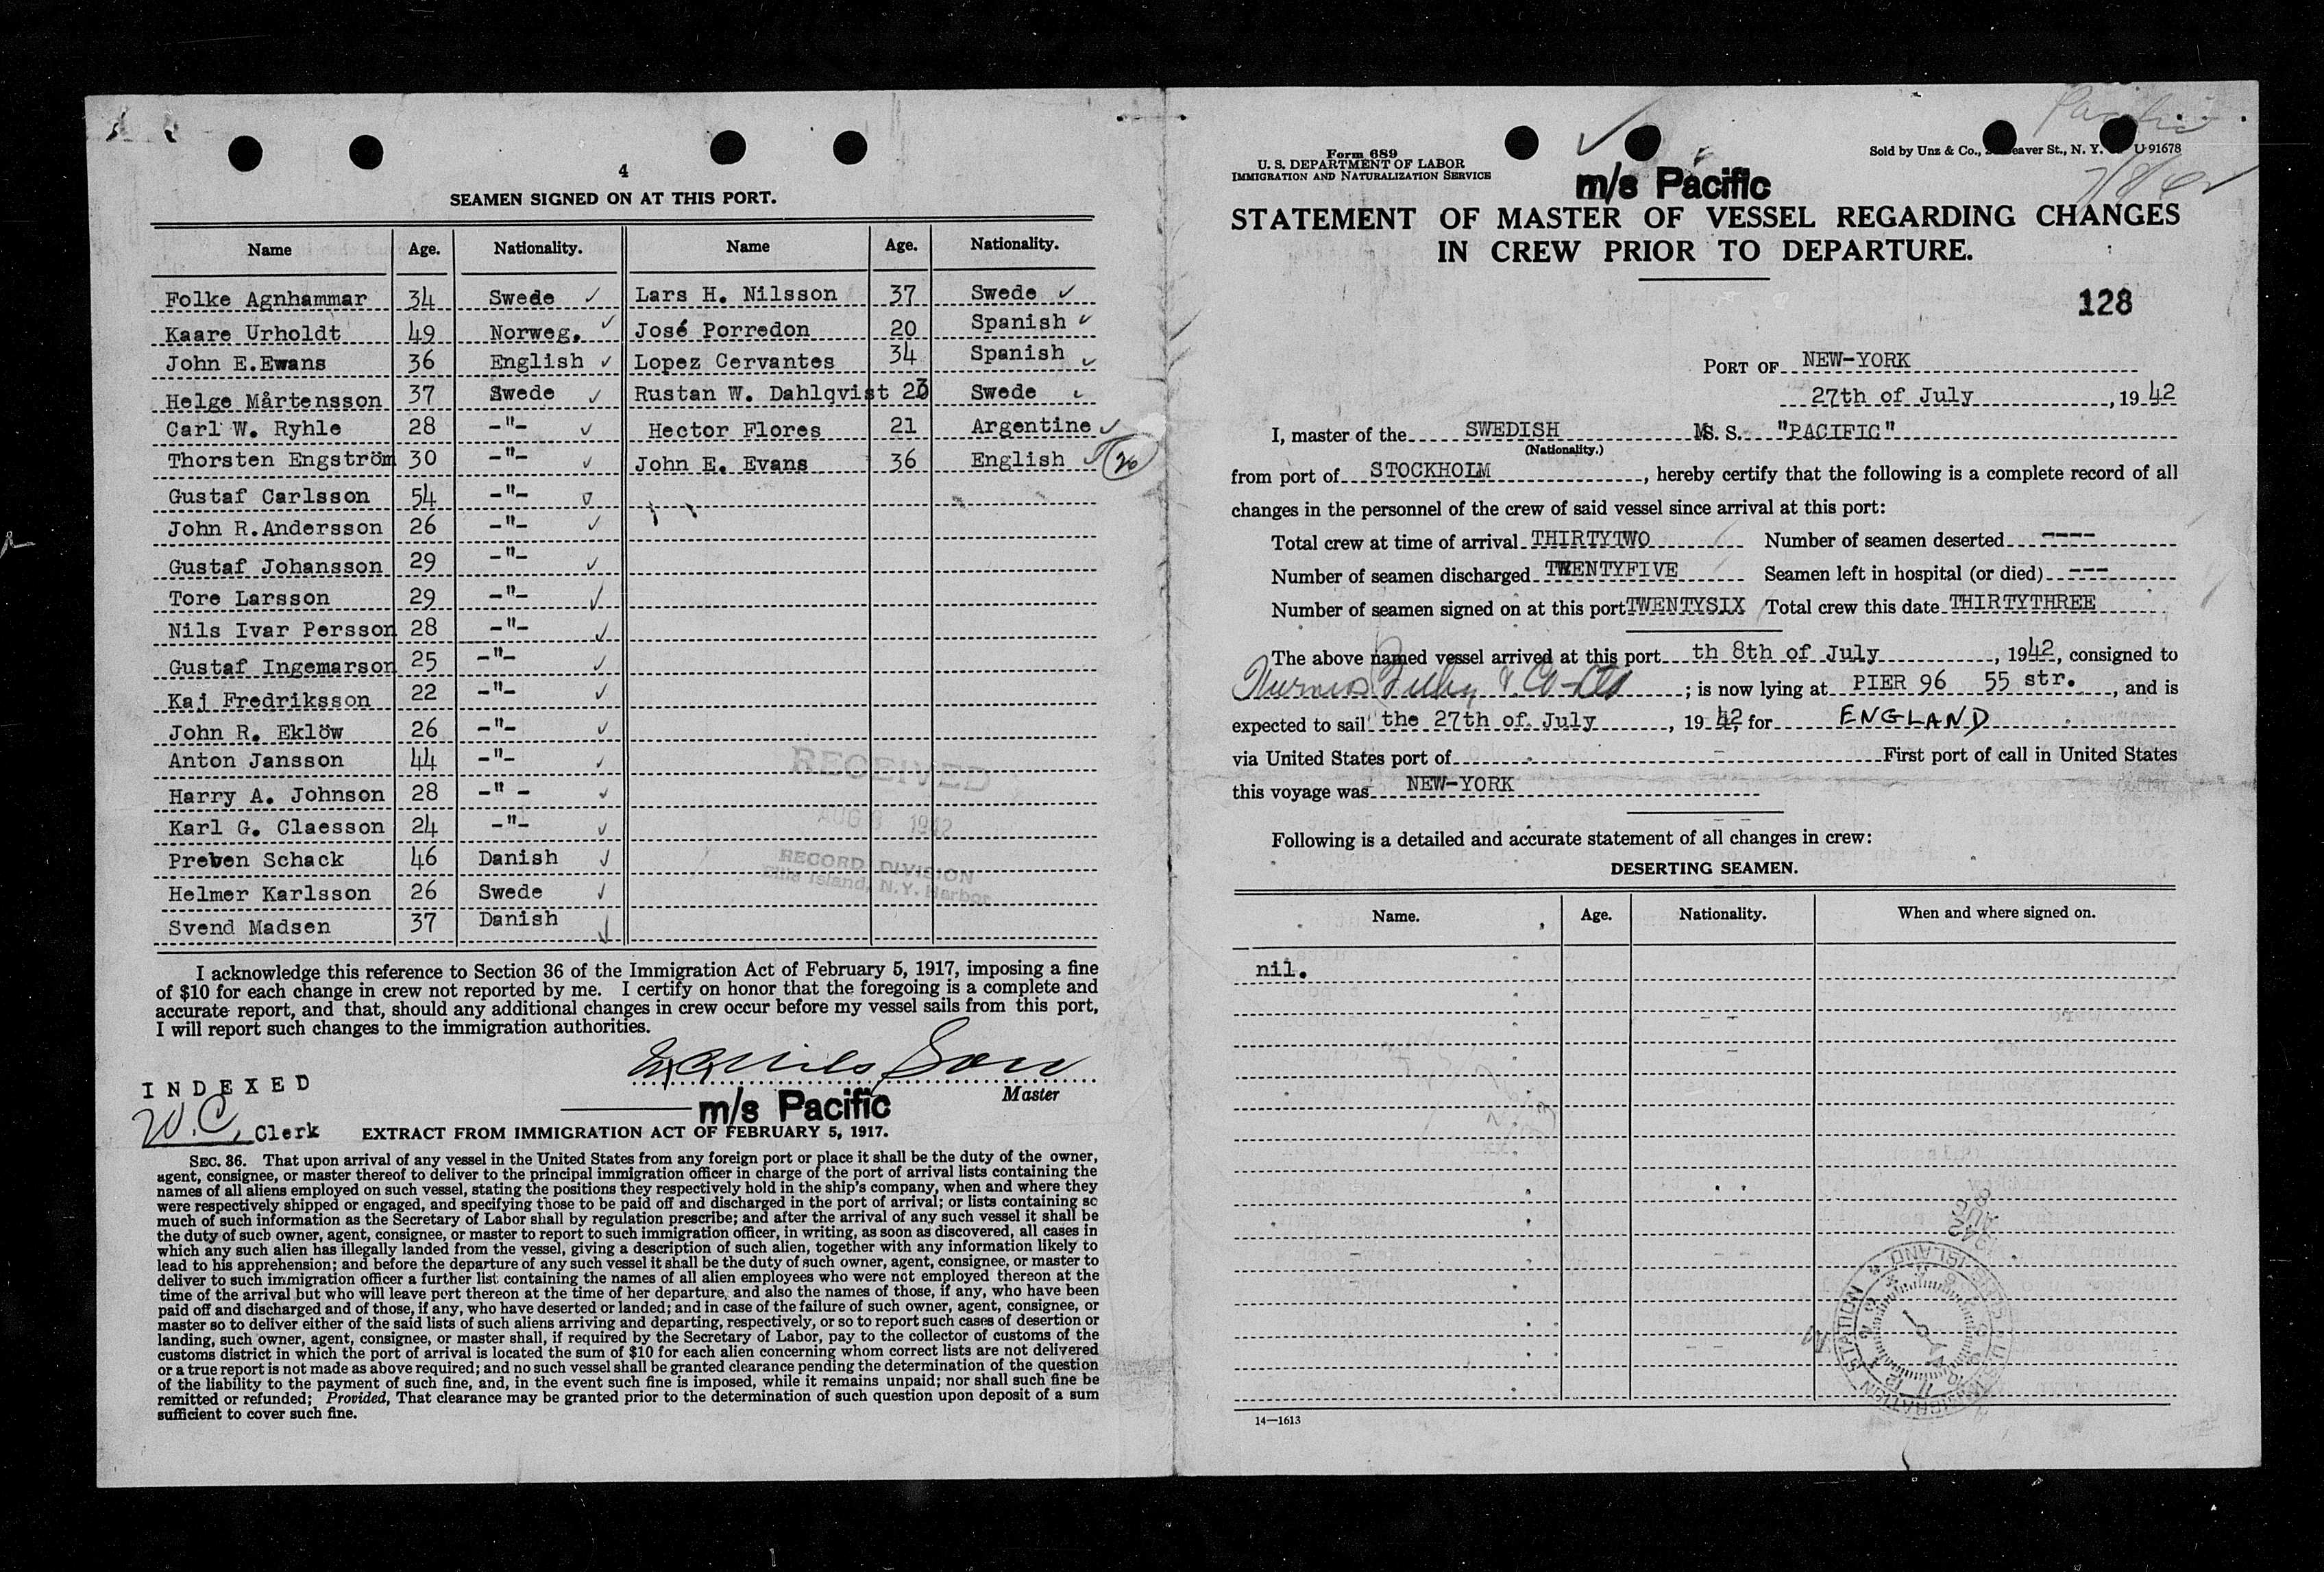 4
SEAMEN SIGNED ON AT THIS PORT.
Name Age. Nationality. Name Age. Nationality.
Folke Agnhammar 34 Swede ✓ Lars H. Nilsson 37 Swede ✓
Kaare Urholdt 49 Norweg. ✓ José Porredon 20 Spanish ✓
John E.Ewans 36 English ✓ Lopez Cervantes 34 Spanish ✓
Helge Mårtensson 37 Swede ✓ Rustan W. Dahlqvist 23 Swede ✓
Carl W. Ryhle 28 -"- ✓ Hector Flores 21 Argentine ✓
Thorsten Engström 30 -"- ✓ John E. Evans 36 English ✓ 26
Gustaf Carlsson 54 -"- ✓
John R.Andersson 26 -"- ✓
Gustaf Johansson 29 -"- ✓
Tore Larsson 29 -"- ✓
Nils Ivar Persson 28 -"- ✓
Gustaf Ingemarson 25 -"- ✓
Kaj Fredriksson 22 -"- ✓
John R. Eklöw 26 -"- ✓
Anton Jansson 44 -"- ✓
Harry A. Johnson 28 -" - ✓
Karl G. Claesson 24 -"- ✓
Preben Schack 46 Danish ✓
Helmer Karlsson 26 Swede ✓
Svend Madsen 37 Danish ✓
RECEIVED
AUG 1942
RECORD DIVISION
Ellis Island, N.Y. Harbor
I acknowledge this reference to Section 36 of the Immigration Act of February 5, 1917, imposing a fine
of $10 for each change in crew not reported by me. I certify on honor that the foregoing is a complete and
accurate report, and that, should any additional changes in crew occur before my vessel sails from this port,
I will report such changes to the immigration authorities.
Master
m/s Pacific
INDEXED
W.C. Clerk
EXTRACT FROM IMMIGRATION ACT OF FEBRUARY 5, 1917.
SEC. 36. That upon arrival of any vessel in the United States from any foreign port or place it shall be the duty of the owner,
agent, consignee, or master thereof to deliver to the principal immigration officer in charge of the port of arrival lists containing the
names of all aliens employed on such vessel, stating the positions they respectively hold in the ship's company, when and where they
were respectively shipped or engaged, and specifying those to be paid off and discharged in the port of arrival; or lists containing so
much of such information as the Secretary of Labor shall by regulation prescribe; and after the arrival of any such vessel it shall be
the duty of such owner, agent, consignee, or master to report to such immigration officer, in writing, as soon as discovered, all cases in
which any such alien has illegally landed from the vessel, giving a description of such alien, together with any information likely to
lead to his apprehension; and before the departure of any such vessel it shall be the duty of such owner, agent, consignee, or master to
deliver to such immigration officer a further list containing the names of all alien employees who were not employed thereon at the
time of the arrival but who will leave port thereon at the time of her departure, and also the names of those, if any, who have been
paid off and discharged and of those, if any, who have deserted or landed; and in case of the failure of such owner, agent, consignee, or
master so to deliver either of the said lists of such aliens arriving and departing, respectively, or so to report such cases of desertion or
landing, such owner, agent, consignee, or master shall, if required by the Secretary of Labor, pay to the collector of customs of the
customs district in which the port of arrival is located the sum of $10 for each alien concerning whom correct lists are not delivered
or a true report is not made as above required; and no such vessel shall be granted clearance pending the determination of the question
of the liability to the payment of such fine, and, in the event such fine is imposed, while it remains unpaid; nor shall such fine be
remitted or refunded; Provided, That clearance may be granted prior to the determination of such question upon deposit of a sum
sufficient to cover such fine.
Pacific
Form 689
U. S. DEPARTMENT OF LABOR
IMMIGRATION AND NATURALIZATION SERVICE
Sold by Unz & Co., eaver St., N. Y. U-91678
m/s Pacific
STATEMENT OF MASTER OF VESSEL REGARDING CHANGES
IN CREW PRIOR TO DEPARTURE.
128
PORT OF NEW-YORK
27th of July, 1942
I, master of the SWEDISH MS. S. "PACIFIC"
(Nationality.)
from port of STOCKHOLM, hereby certify that the following is a complete record of all
changes in the personnel of the crew of said vessel since arrival at this port:
Total crew at time of arrival THIRTYTWO Number of seamen deserted ----
Number of seamen discharged TWENTYFIVE Seamen left in hospital (or died) ---
Number of seamen signed on at this port TWENTYSIX Total crew this date THIRTYTHREE
The above named vessel arrived at this port th 8th of July, 1942, consigned to
; is now lying at PIER 96 55 str., and is
expected to sail the 27th of July, 1942, for ENGLAND
via United States port of - First port of call in United States
this voyage was NEW-YORK
Following is a detailed and accurate statement of all changes in crew:
DESERTING SEAMEN.
Name. Age. Nationality. When and where signed on.
nil.
14—1613